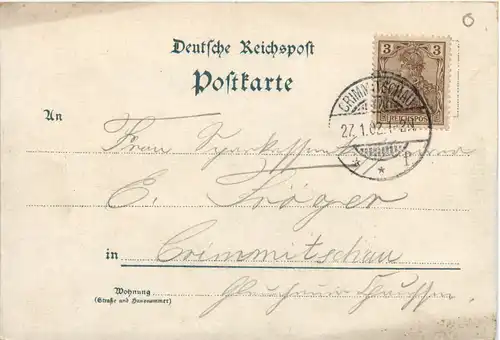 Deutsche Reichspost
Postkarte
3 3
REICHSPOST
CRIMMITSCHAU
27.1.02.
An
Frau Sparkassen
E. Tröger
in Crimmitschau
Wohnung
(Straße und Hausnummer)